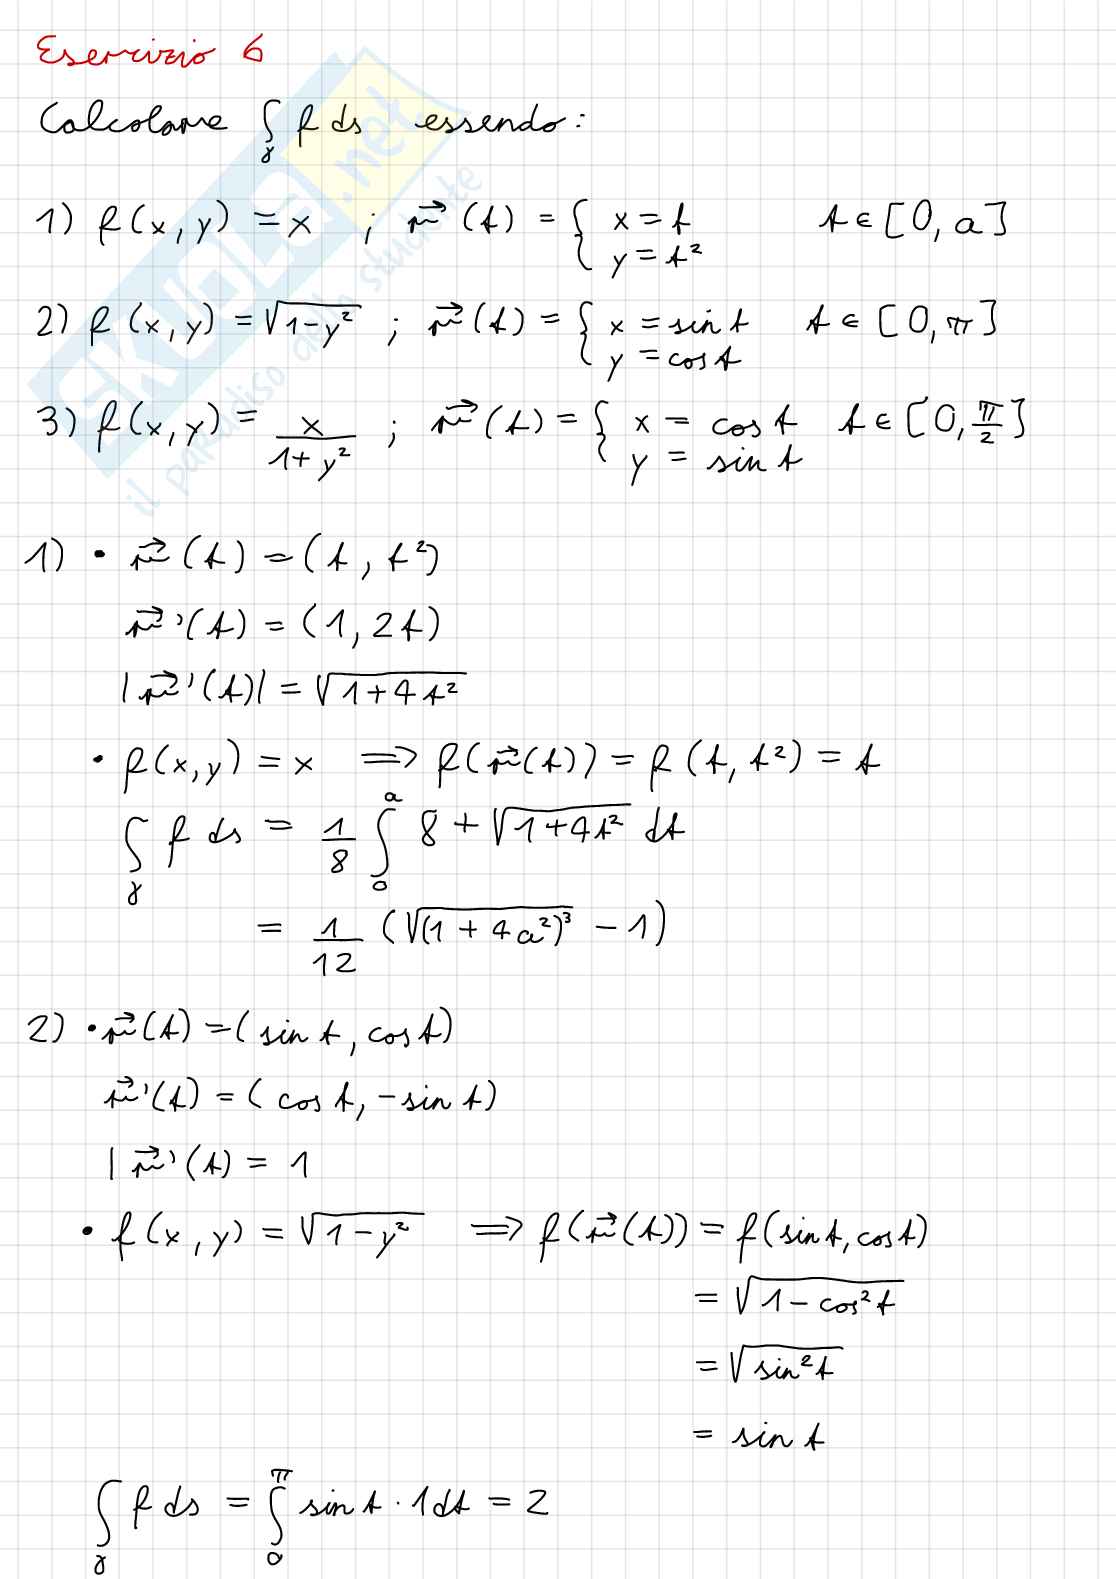 Esercizio 6
Calcolare ∫_γ f ds essendo:
1) f(x,y) = x ; r⃗(t) = { x = t   t ∈ [0, a]
y = t²
2) f(x,y) = √(1-y²) ; r⃗(t) = { x = sin t   t ∈ [0, π]
y = cos t
3) f(x,y) = x/(1+y²) ; r⃗(t) = { x = cos t   t ∈ [0, π/2]
y = sin t
SKUOLA.net
il paradiso dello studente
1) • r⃗(t) = (t, t²)
r⃗'(t) = (1, 2t)
|r⃗'(t)| = √(1+4t²)
• f(x,y) = x ⟹ f(r⃗(t)) = f(t, t²) = t
∫_γ f ds = 1/8 ∫_0^a 8 + √(1+4t²) dt
= 1/12 (√(1+4a²)³ - 1)
2) • r⃗(t) = (sin t, cos t)
r⃗'(t) = (cos t, -sin t)
|r⃗'(t) = 1
• f(x,y) = √(1-y²) ⟹ f(r⃗(t)) = f(sin t, cos t)
= √(1-cos²t)
= √(sin²t)
= sin t
∫_γ f ds = ∫_0^π sin t · 1 dt = 2